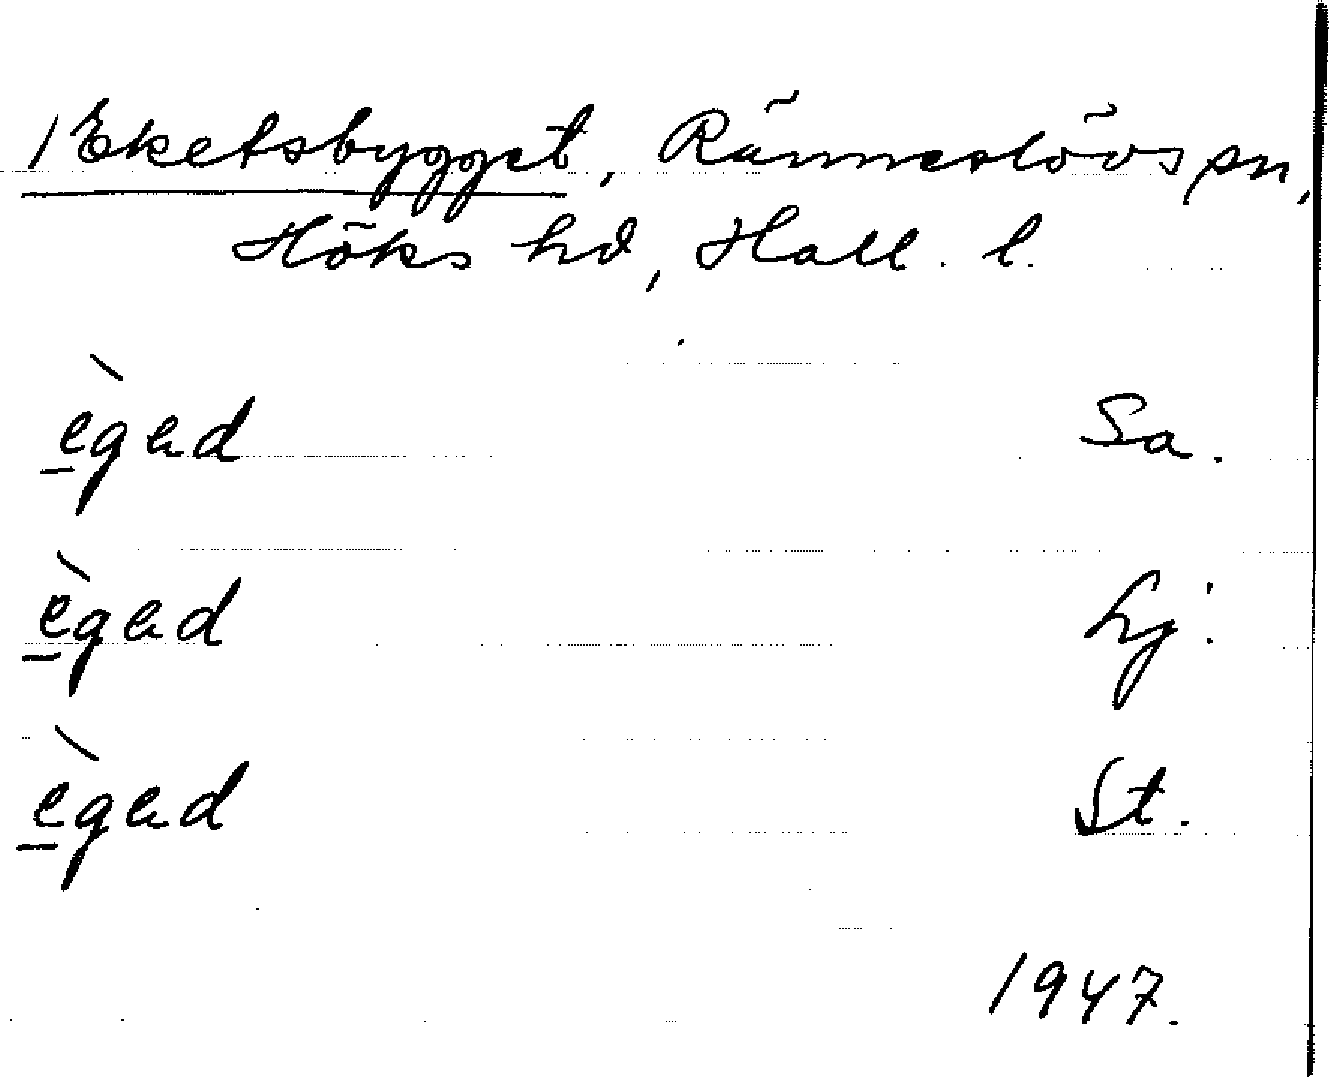 /Eketsbygget, Ränneslövs sn,
Höks hd, Hall. l.
è̱gad Sa.
è̱gad Lj.
è̱gad St.
1947.